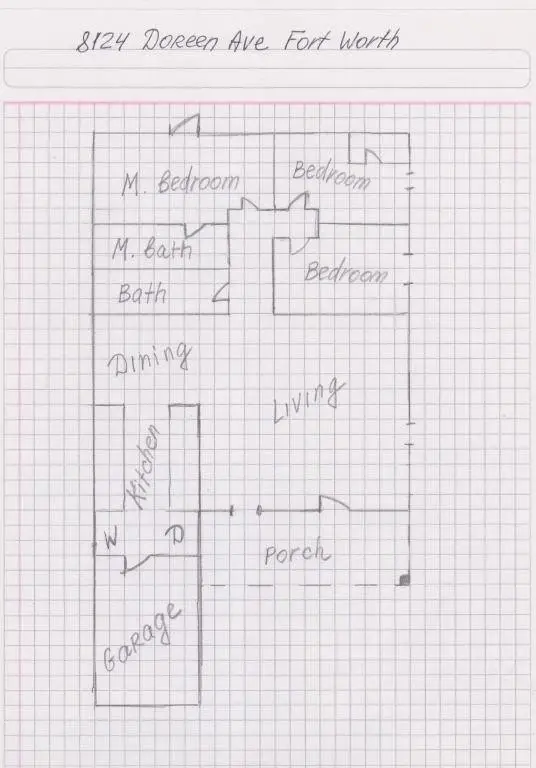 8124 Doreen Ave Fort Worth
M. Bedroom
Bedroom
M. Bath
Bedroom
Bath
Dining
Living
Kitchen
W D
Porch
Garage